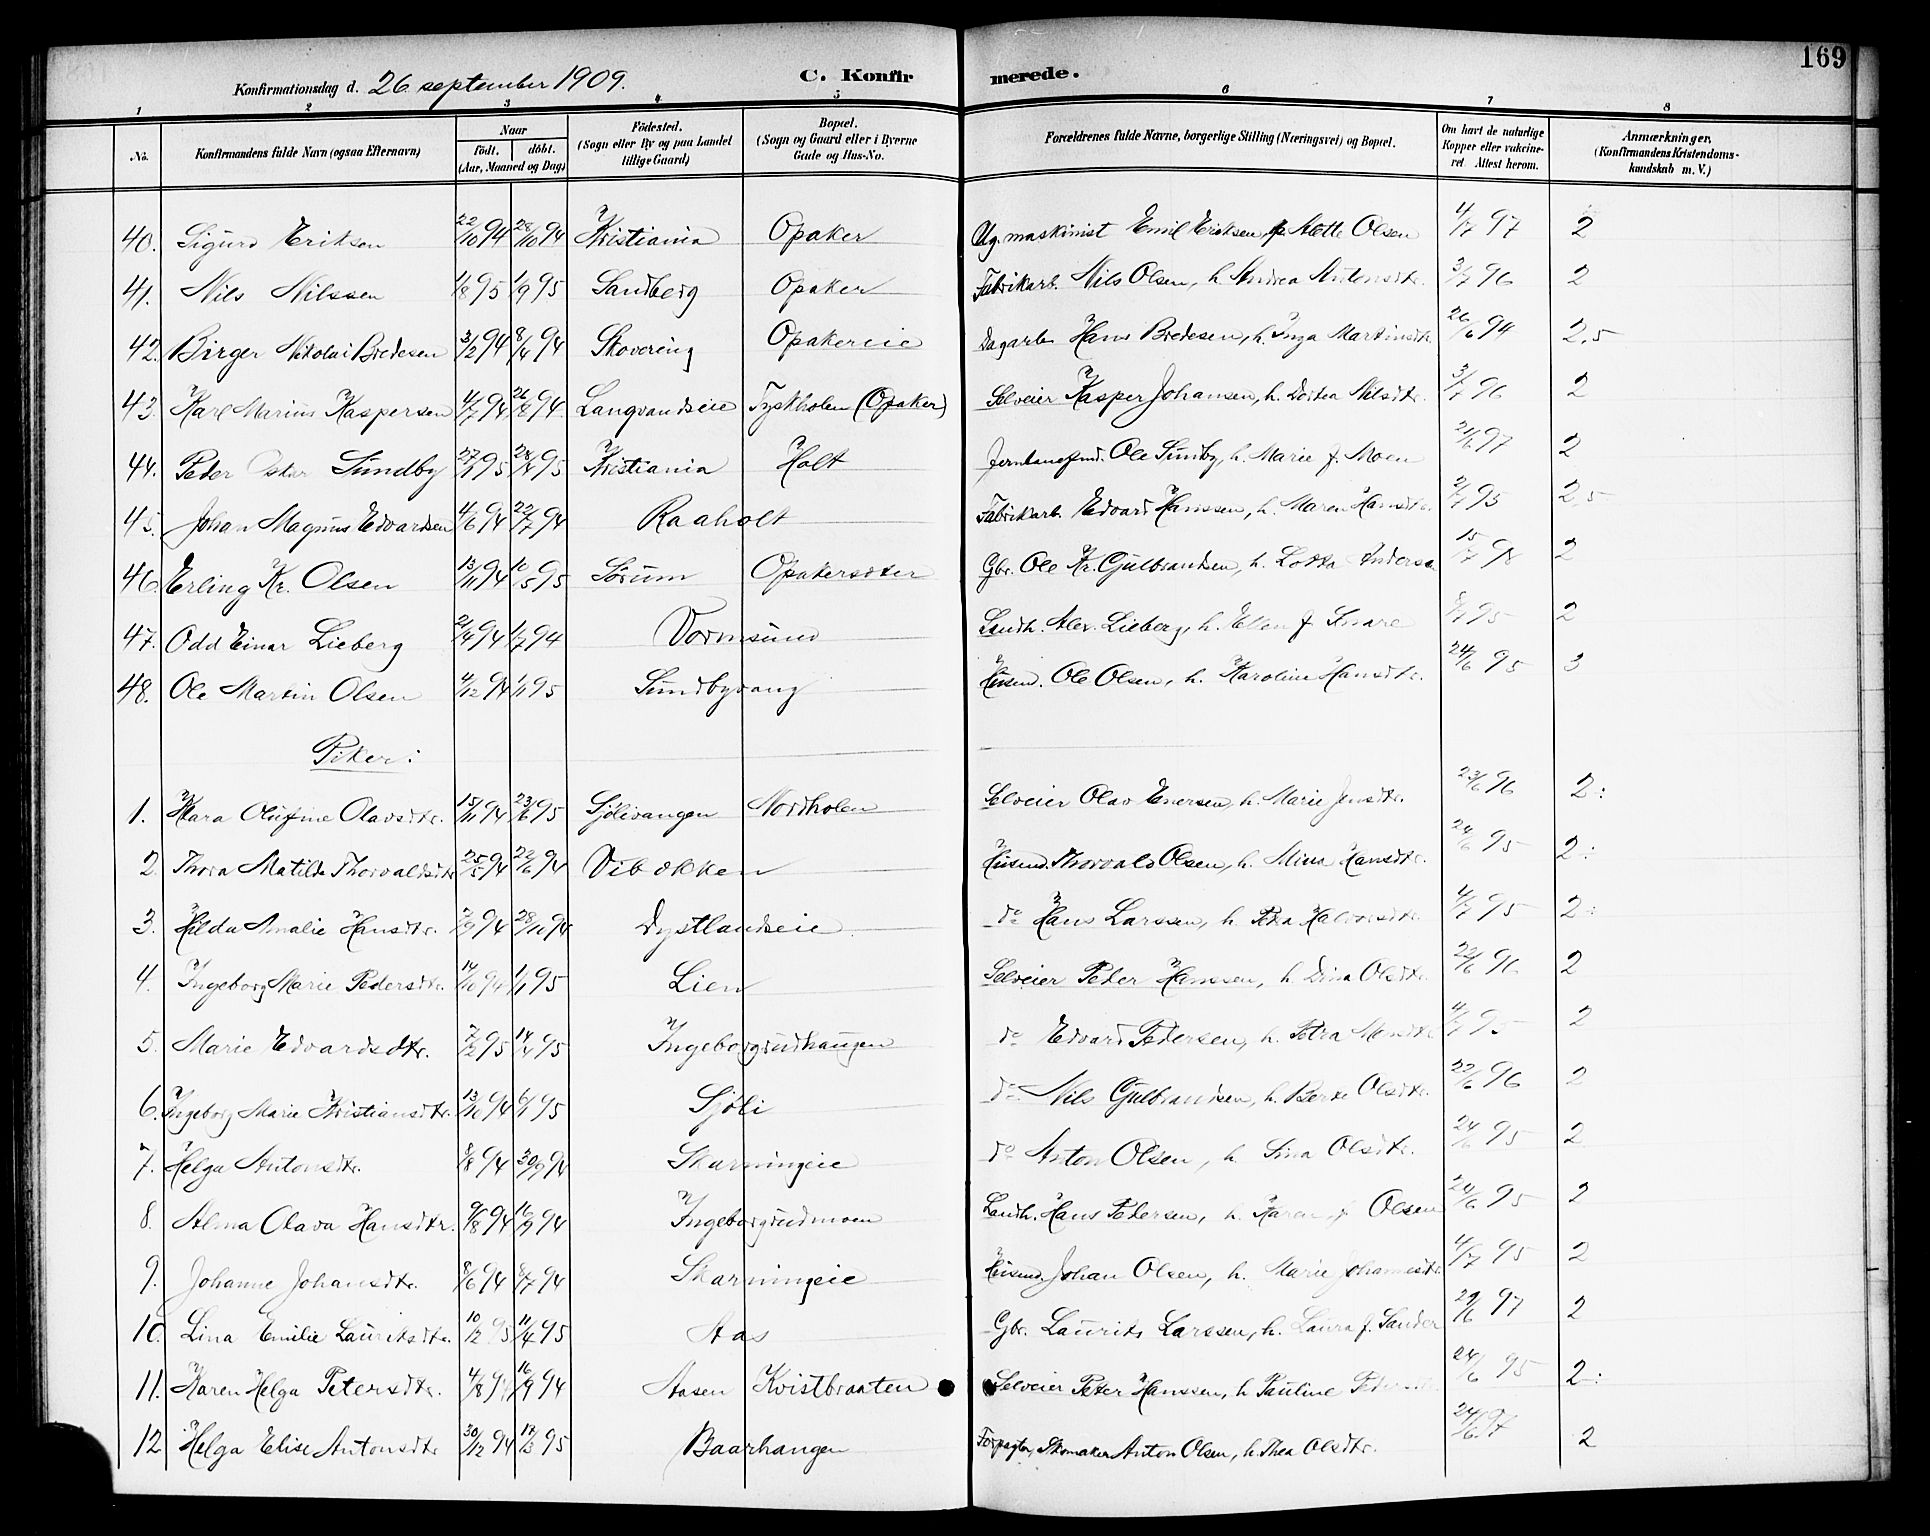 169
Konfirmationsdag d. 26 september 1909. C. Konfirmerede.
1 2 3 4 5 6 7 8
No. Konfirmandens fulde Navn (ogsaa Efternavn) Naar født. døbt. (Aar, Maaned og Dag) Fødested. (Sogn eller By og paa Landet tillige Gaard) Bopæl. (Sogn og Gaard eller i Byerne Gade og Hus-No. Forældrenes fulde Navne, borgerlige Stilling (Næringsvei) og Bopæl. Om havt de naturlige Kopper eller vakcineret. Attest herom. Anmærkninger, (Konfirmandens Kristendomskundskab m. V.)
40. Sigurd Eriksen 22/10 94 28/10 94 Kristiania Opaker maskinist Emil Eriksen, Olsen 4/7 97 2
41. Nils Nilssen 1/8 95 1/9 95 Sandberg Opaker Fabrikarb. Nils Olsen, h. Andrea Antonsdtr. 3/7 96 2
42. Birger Nikolai Bredesen 3/2 94 8/4 94 Skovering Opakereie Dagarb. Hans Bredesen, h. Inga Martinsdtr. 26/6 94 2,5
43. Karl Marius Kaspersen 4/7 94 26/8 94 Langvandseie Tyskholen (Opaker) Selveier Kasper Johansen, h. Dortea Nilsdtr. 3/7 96 2
44. Peder Oskar Sundby 27/1 95 28/4 95 Kristiania Holt Ole Sundby, h. Marie f. Moen 21/6 97 2
45. Johan Magnus Edvardsen 4/6 94 22/7 94 Raaholt Fabrikarb. Edvard Hanssen, h. Maren Hansdtr. 2/7 95 2,5
46. Erling Kr. Olsen 13/11 94 10/5 95 Sørum Opakersæter Gbr. Ole Kr. Gulbrandsen, h. Lotta 15/7 98 2
47. Odd Einar Lieberg 21/4 94 1/7 94 Vormsund Landh. Alex. Lieberg, h. Ellen f. Snare 95 2
48. Ole Martin Olsen 4/12 94 1/1 95 Sundbyvang Husmd. Ole Olsen, h. Karoline Hansdtr. 24/6 95 3
Piker:
1. Klara Olufine Olavsdtr. 15/11 94 23/6 95 Sjølivangen Nordholen Selveier Olav Enersen, h. Marie Jensdtr. 23/6 96 2:
2. Thora Matilde Thorvaldsdtr 25/5 94 22/6 94 Vibækken Husmd. Thorvald Olsen, h. Mina Hansdtr. 24/6 95 2:
3. Hilda Amalie Hansdtr. 7/9 94 28/10 94 Dystlandseie do Hans Larssen, h. Petra Halvorsdtr. 4/7 95 2:
4. Ingeborg Marie Pedersdtr. 14/10 94 1/1 95 Lien Selveier Peder Hanssen, h. Dina Olsdtr. 22/6 96 2
5. Marie Edvardsdtr. 7/2 95 14/4 95 Ingeborgrudhaugen do Edvard Pedersen, h. Petra 4/7 95 2
6. Ingeborg Marie Kristiansdtr. 13/10 94 6/1 95 Sjøli do Nils Gulbrandsen, h. Berte Olsdtr. 22/6 96 2
7. Helga Antonsdtr. 8/8 94 30/9 94 Skarningeie do Anton Olsen, h. Lina Olsdtr. 24/6 95 2
8. Alma Olava Hansdtr. 9/8 94 16/9 94 Ingeborgrudmoen Landh. Hans Pedersen, h. Karen f. Olsen 24/6 95 2
9. Johanne Johansdtr. 8/6 94 8/7 94 Skarningeie Husmd. Johan Olsen, h. Marie Johannesdtr. 4/7 95 2
10. Lina Emilie Lauritsdtr. 10/2 95 11/4 95 Aas Gbr. Laurits Larssen, h. Laura f. Sander 29/6 97 2
11. Karen Helga Petersdtr. 4/8 94 16/9 94 Aasen Kvistbraaten Selveier Peter Hanssen, h. Pauline 24/6 95 2:
12 Helga Elise Antonsdtr 30/12 94 17/3 95 Baarhaugen Forpagter, Skomaker Anton Olsen, h. Thea Olsdtr. 24/6 97 2